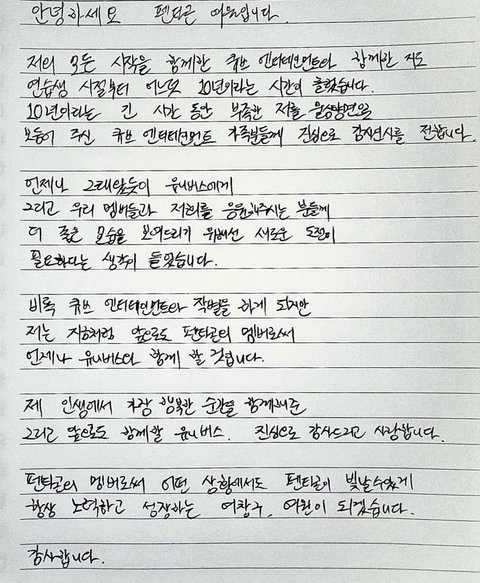 안녕하세요 펜타곤 여원입니다.
저의 모든 시작을 함께한 큐브 엔터테인먼트와 함께한 지도
연습생 시절부터 어느덧 10년이라는 시간이 흘렀습니다.
10년이라는 긴 시간 동안 부족한 저를 물심양면으로
보듬어 주신 큐브 엔터테인먼트 가족분들께 진심으로 감사인사를 전합니다.
언제나 그래왔듯이 유니버스에게
그리고 우리 멤버들과 저희를 응원해주시는 분들께
더 좋은 모습을 보여드리기 위해선 새로운 도전이
필요하다는 생각이 들었습니다.
비록 큐브 엔터테인먼트와 작별을 하게 되지만
저는 지금처럼 앞으로도 펜타곤의 멤버로써
언제나 유니버스와 함께 할 것입니다.
제 인생에서 가장 행복한 순간을 함께해준
그리고 앞으로도 함께할 유니버스. 진심으로 감사드리고 사랑합니다.
펜타곤의 멤버로써 어떤 상황에서도 펜타곤이 빛날수있게
항상 노력하고 성장하는 여창구, 여원이 되겠습니다.
감사합니다.